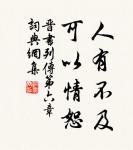 人有不及
可以情恕
晉書列傳第六章
詞典網集